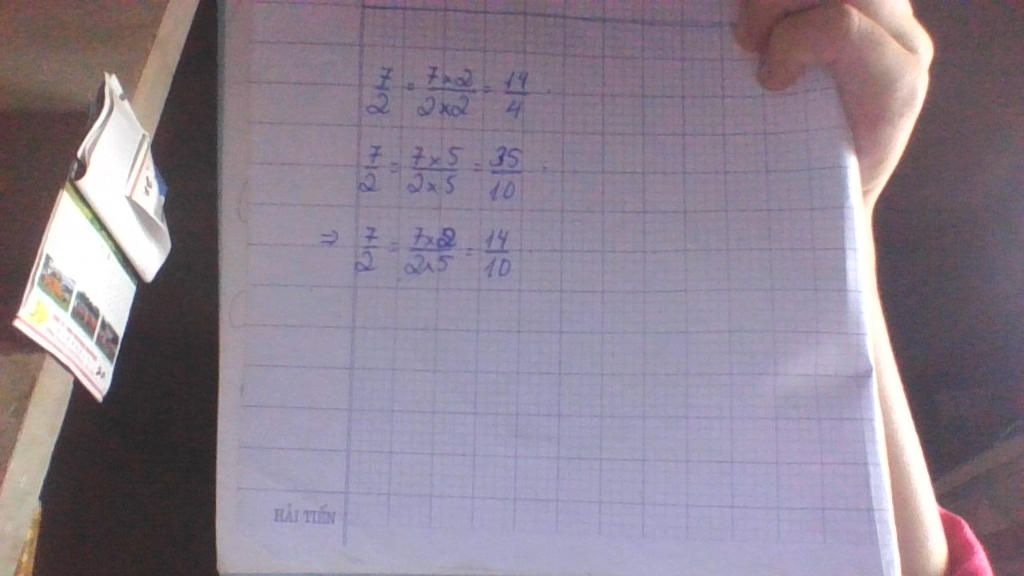 7/2 = 7×2/2×2 = 14/4
7/2 = 7×5/2×5 = 35/10
⇒ 7/2 = 7×2/2×5 = 14/10
HẢI TIẾN